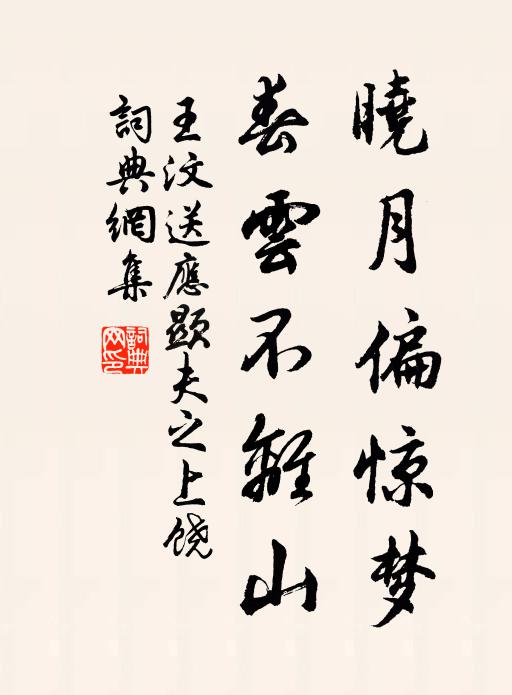 曉月偏惊梦
春雲不離山
王汶送應顕夫之上饶
詞典網集
詞典网印